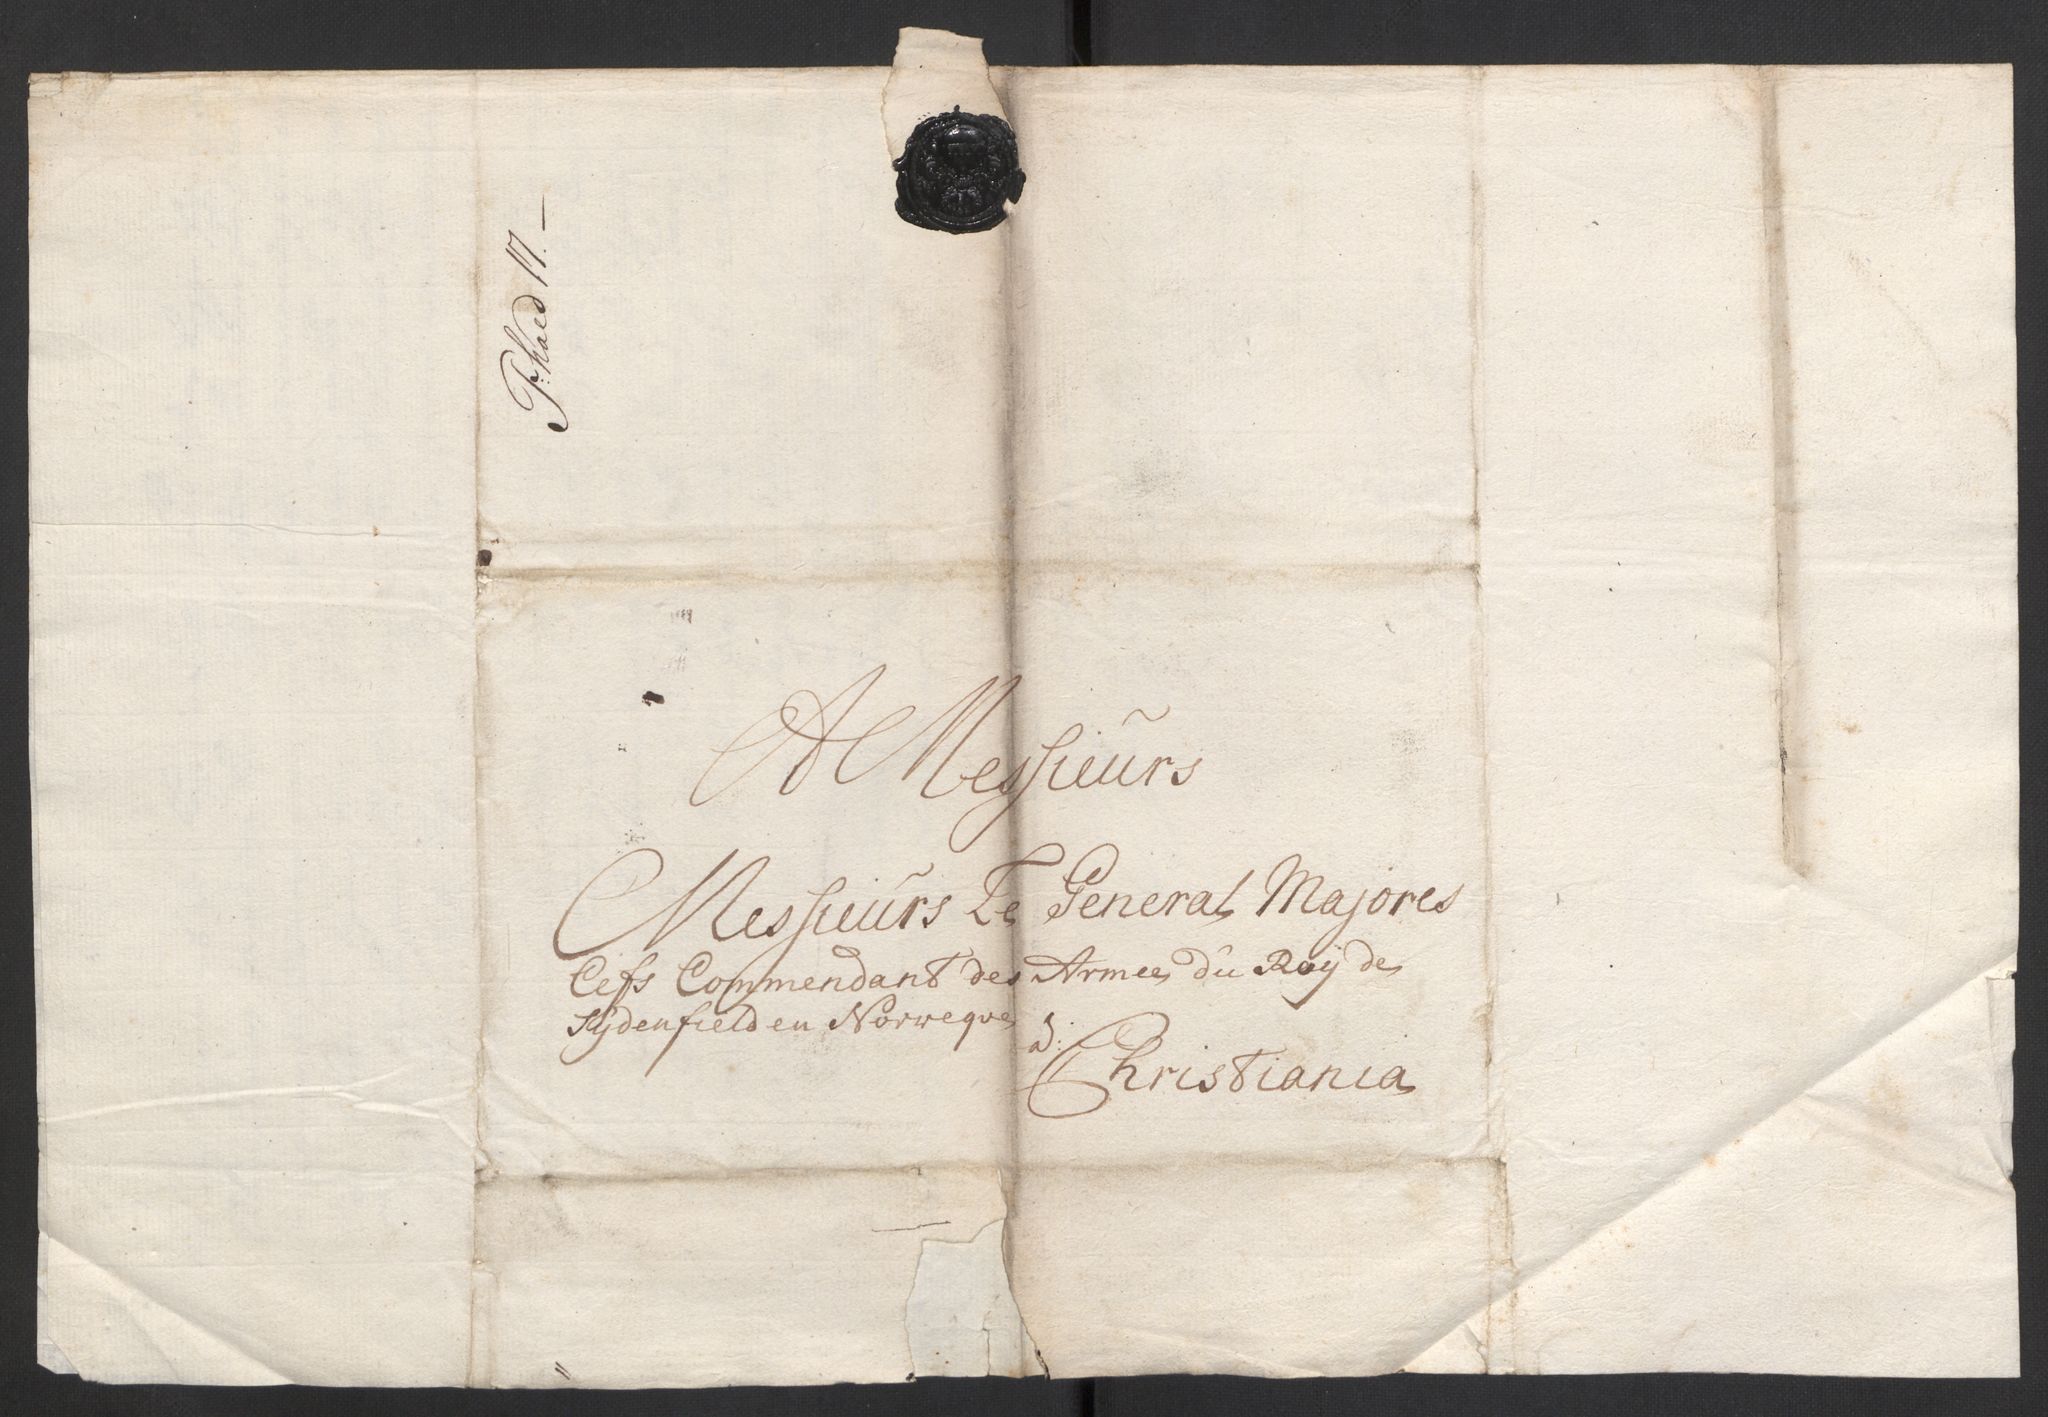 A Messieŭrs
Messieŭrs Le General Majores
Cefs Commendant des Armee dŭ Roy de
Sydenfield en Norweque
a:
Christiania